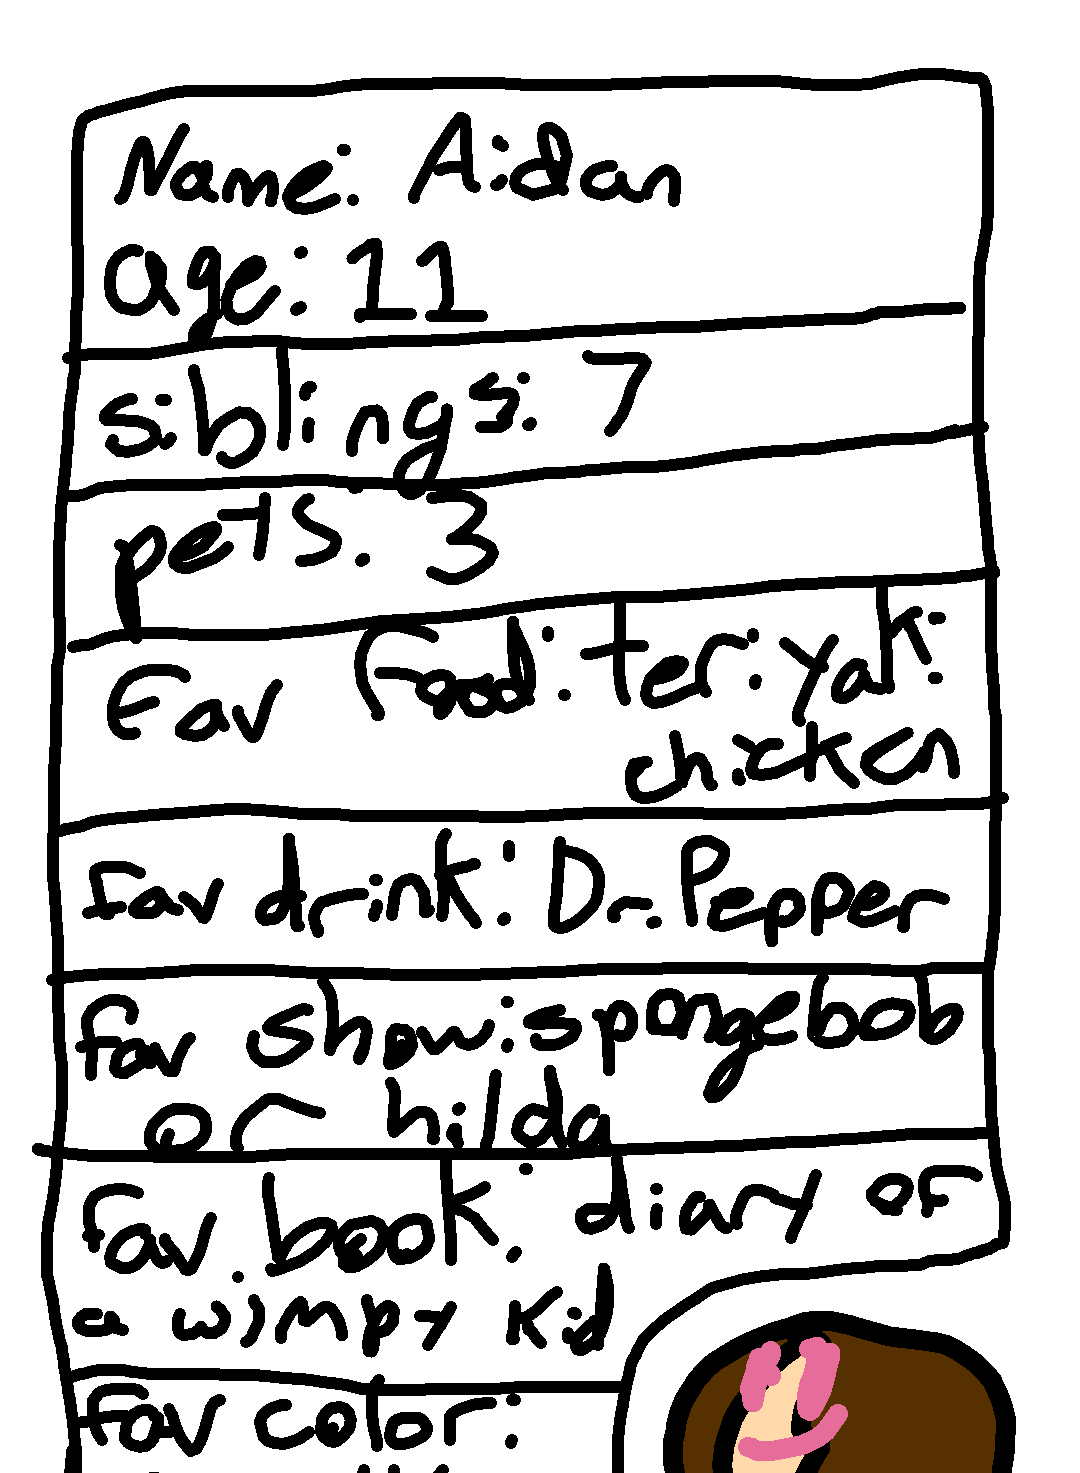 Name: Aidan
age: 11
siblings: 7
pets: 3
Fav food: teriyaki
chicken
fav drink: Dr. Pepper
fav show: spongebob
or hilda
fav book: diary of
a wimpy kid
fav color: